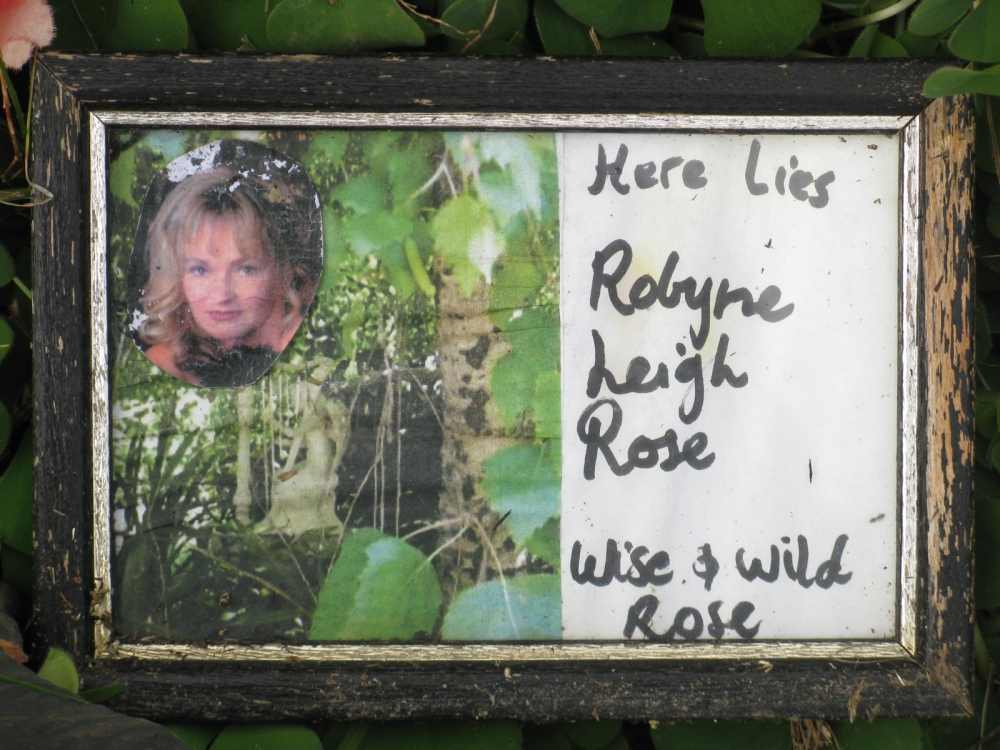 Here Lies
Robyne
Leigh
Rose
Wise & Wild
Rose